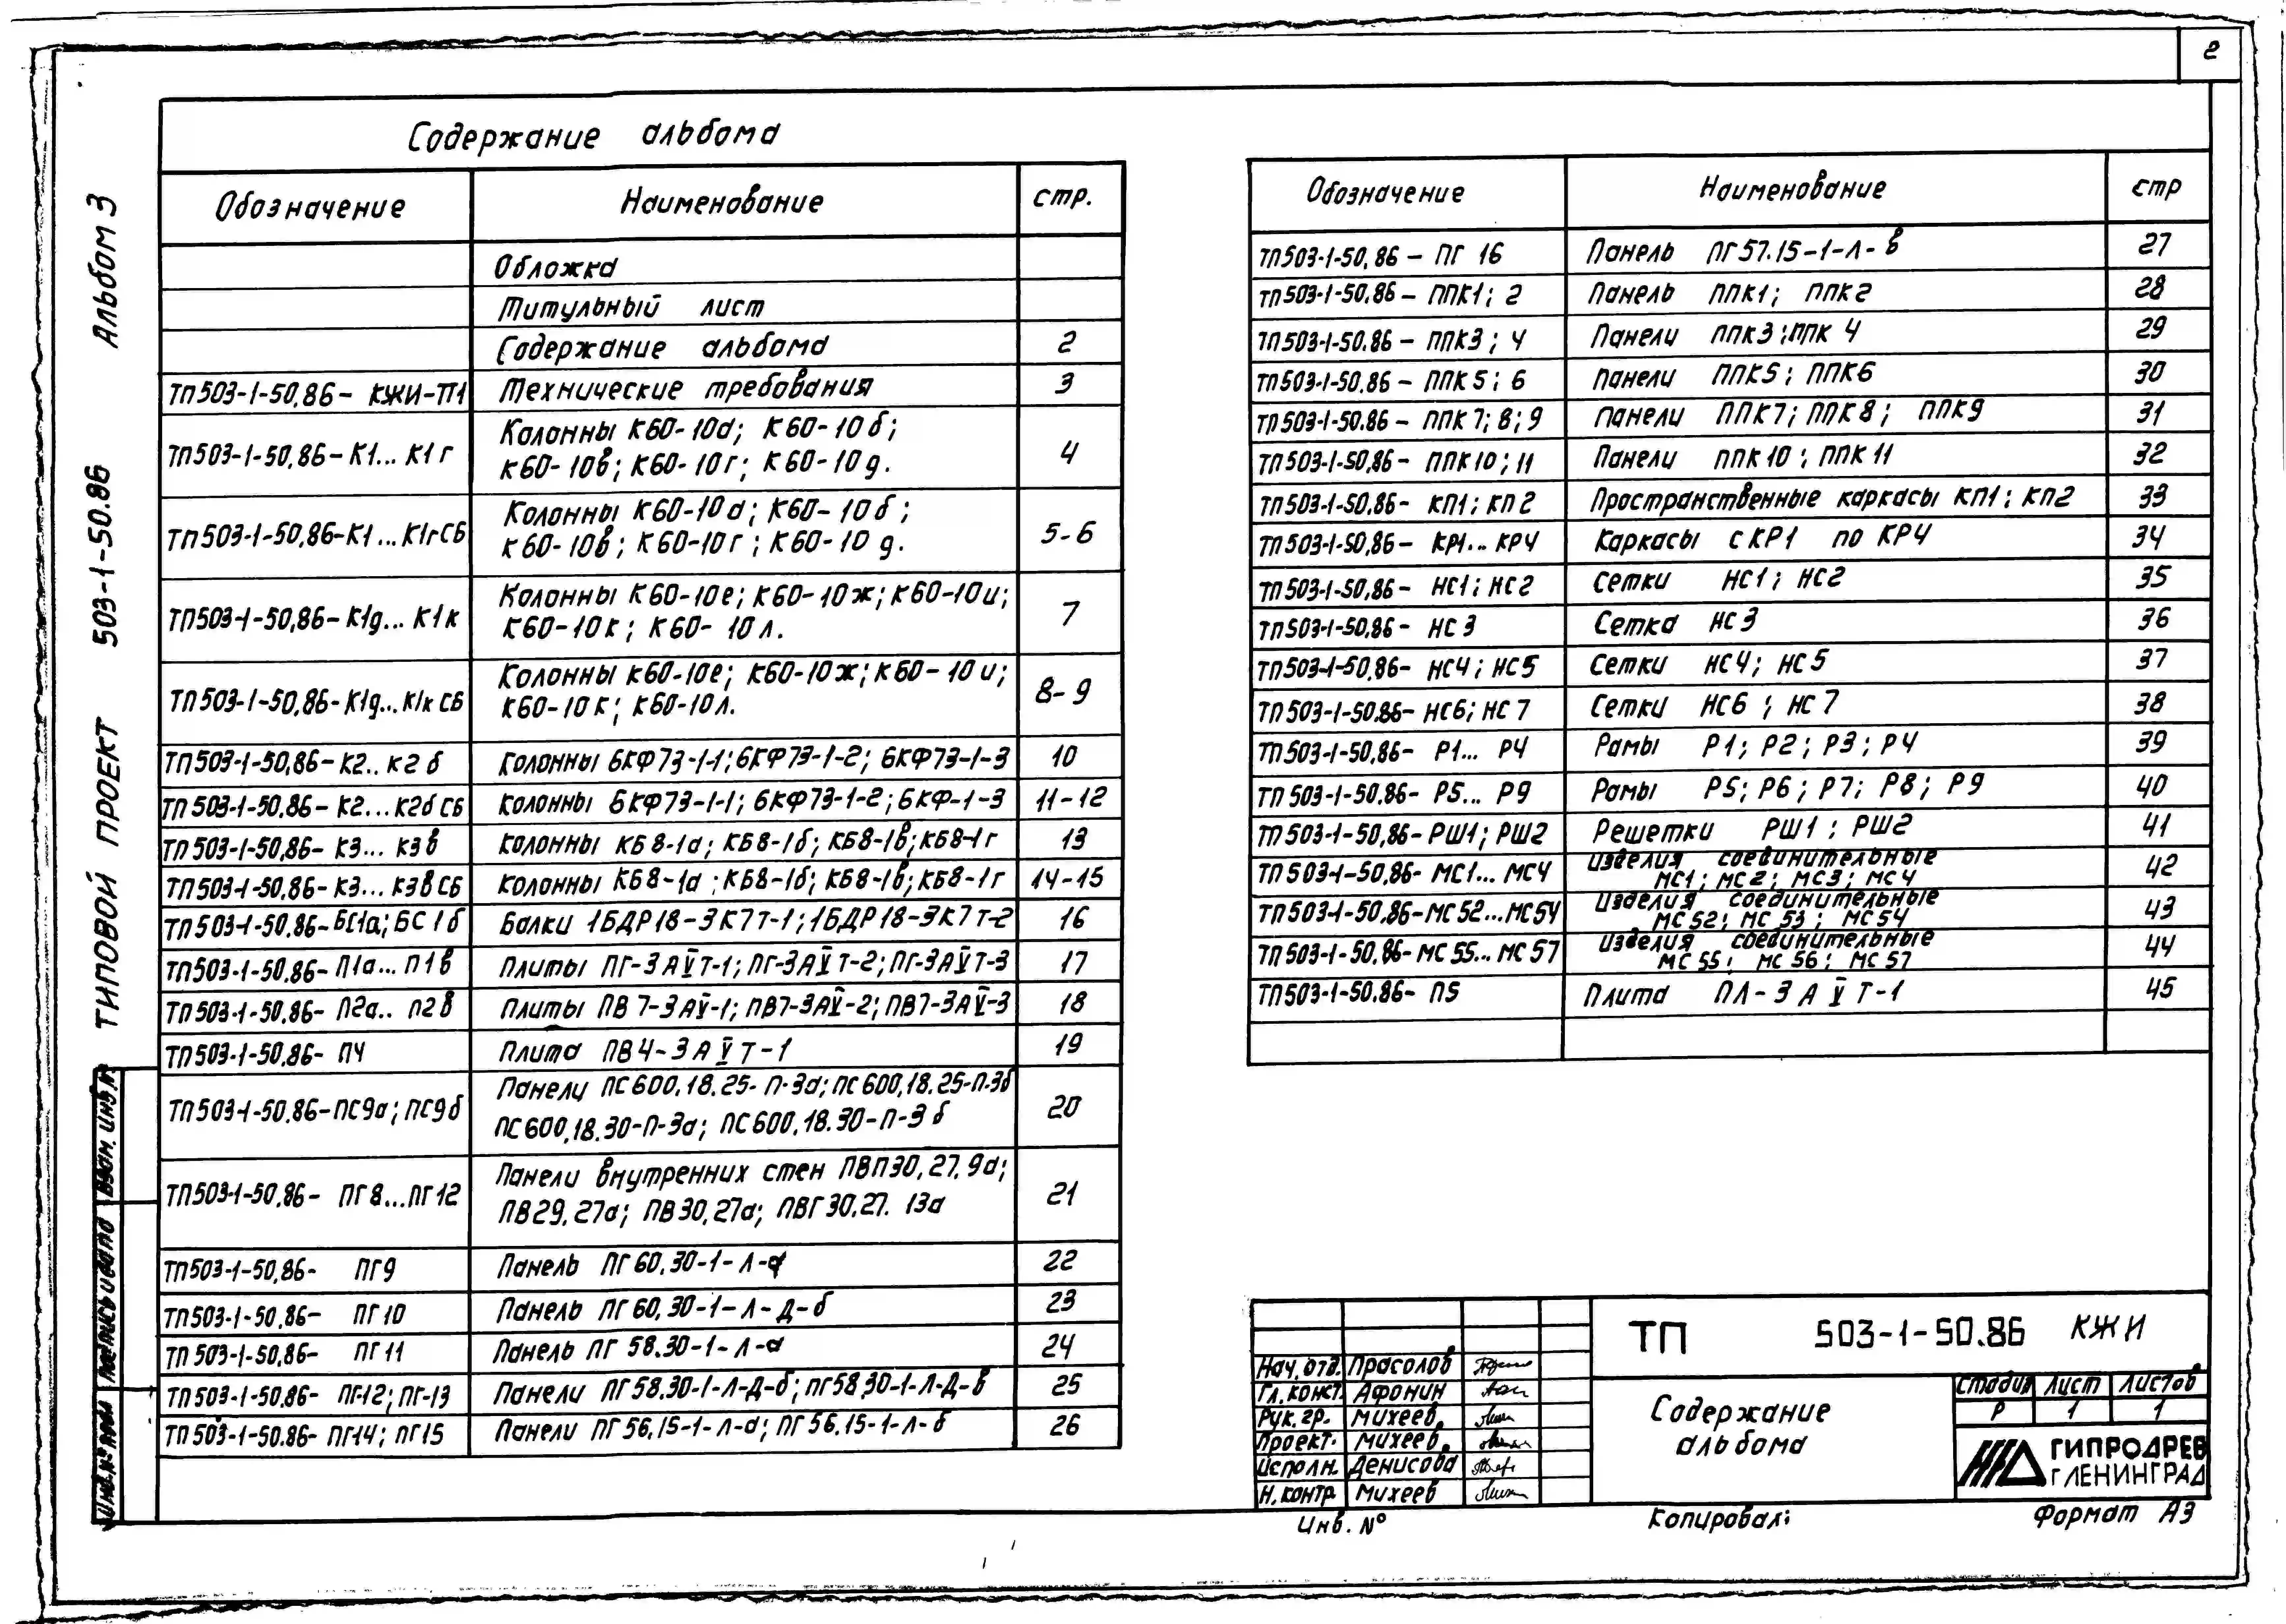 2
Альбом 3
ТИПОВОЙ ПРОЕКТ 503-1-50.86
Содержание альбома
Обозначение Наименование стр.
Обложка
Титульный лист
Содержание альбома 2
ТП503-1-50.86- КЖИ-П1 Технические требования 3
ТП503-1-50.86-К1... К1г Колонны К60-10а; К60-10б;
К60-10в; К60-10г; К60-10д. 4
ТП503-1-50.86-К1...К1гСБ Колонны К60-10а; К60-10б;
К60-10в; К60-10г; К60-10д. 5-6
ТП503-1-50.86-К1д... К1к Колонны К60-10е; К60-10ж; К60-10и;
К60-10к; К60-10л. 7
ТП503-1-50.86-К1д...К1кСБ Колонны К60-10е; К60-10ж; К60-10и;
К60-10к; К60-10л. 8-9
ТП503-1-50.86-К2.. К2б Колонны 6КФ73-1-1; 6КФ73-1-2; 6КФ73-1-3 10
ТП503-1-50.86-К2...К2бСБ Колонны 6КФ73-1-1; 6КФ73-1-2; 6КФ-1-3 11-12
ТП503-1-50.86- К3... К3в Колонны КБ8-1а; КБ8-1б; КБ8-1в; КБ8-1г 13
ТП503-1-50.86-К3...К3вСБ Колонны КБ8-1а; КБ8-1б; КБ8-1в; КБ8-1г 14-15
ТП503-1-50.86-БС1а; БС1б Балки 1БДР18-3К7Т-1; 1БДР18-3К7Т-2 16
ТП503-1-50.86-П1а... П1в Плиты ПГ-3АVТ-1; ПГ-3АVТ-2; ПГ-3АVТ-3 17
ТП503-1-50.86- П2а.. П2в Плиты ПВ7-3АV-1; ПВ7-3АV-2; ПВ7-3АV-3 18
ТП503-1-50.86- П4 Плита ПВ4-3АVТ-1 19
ТП503-1-50.86-ПС9а; ПС9б Панели ПС600.18.25-П-3а; ПС600.18.25-П-3б
ПС600.18.30-П-3а; ПС600.18.30-П-3б 20
ТП503-1-50.86- ПГ8...ПГ12 Панели внутренних стен ПВП30.27.9а;
ПВ29.27а; ПВ30.27а; ПВГ30.27.13а 21
ТП503-1-50.86- ПГ9 Панель ПГ60.30-1-Л-а 22
ТП503-1-50.86- ПГ10 Панель ПГ60.30-1-Л-Д-б 23
ТП503-1-50.86- ПГ11 Панель ПГ58.30-1-Л-а 24
ТП503-1-50.86- ПГ-12; ПГ-13 Панели ПГ58.30-1-Л-Д-б; ПГ58.30-1-Л-Д-в 25
ТП503-1-50.86- ПГ-14; ПГ15 Панели ПГ56.15-1-Л-а; ПГ56.15-1-Л-б 26
Обозначение Наименование стр
ТП503-1-50.86- ПГ 16 Панель ПГ57.15-1-Л-в 27
ТП503-1-50.86- ППК1; 2 Панель ППК1; ППК2 28
ТП503-1-50.86- ППК3; 4 Панели ППК3; ППК 4 29
ТП503-1-50.86- ППК5; 6 Панели ППК5; ППК6 30
ТП503-1-50.86- ППК7; 8; 9 Панели ППК7; ППК8; ППК9 31
ТП503-1-50.86- ППК10; 11 Панели ППК10; ППК11 32
ТП503-1-50.86- КП1; КП2 Пространственные каркасы КП1; КП2 33
ТП503-1-50.86- КР1... КР4 Каркасы с КР1 по КР4 34
ТП503-1-50.86- НС1; НС2 Сетки НС1; НС2 35
ТП503-1-50.86- НС3 Сетка НС3 36
ТП503-1-50.86- НС4; НС5 Сетки НС4; НС5 37
ТП503-1-50.86- НС6; НС7 Сетки НС6; НС7 38
ТП503-1-50.86- Р1... Р4 Рамы Р1; Р2; Р3; Р4 39
ТП503-1-50.86- Р5... Р9 Рамы Р5; Р6; Р7; Р8; Р9 40
ТП503-1-50.86-РШ1; РШ2 Решетки РШ1; РШ2 41
ТП503-1-50.86- МС1... МС4 Изделия соединительные
МС1; МС2; МС3; МС4 42
ТП503-1-50.86-МС52...МС54 Изделия соединительные
МС52; МС53; МС54 43
ТП503-1-50.86-МС55...МС57 Изделия соединительные
МС55; МС56; МС57 44
ТП503-1-50.86- П5 Плита ПЛ-3АVТ-1 45
Взам. инв.№
Подпись и дата
Инв.№ подл.
ТП 503-1-50.86 КЖИ
Нач. отд. Прасолов
Гл. конст. Афонин
Рук. гр. Михеев
Проект. Михеев
Исполн. Денисова
Н. контр. Михеев
Содержание
альбома
Стадия Лист Листов
Р 1 1
ГИПРОДРЕВ
г ЛЕНИНГРАД
Инв. №
Копировал:
Формат А3